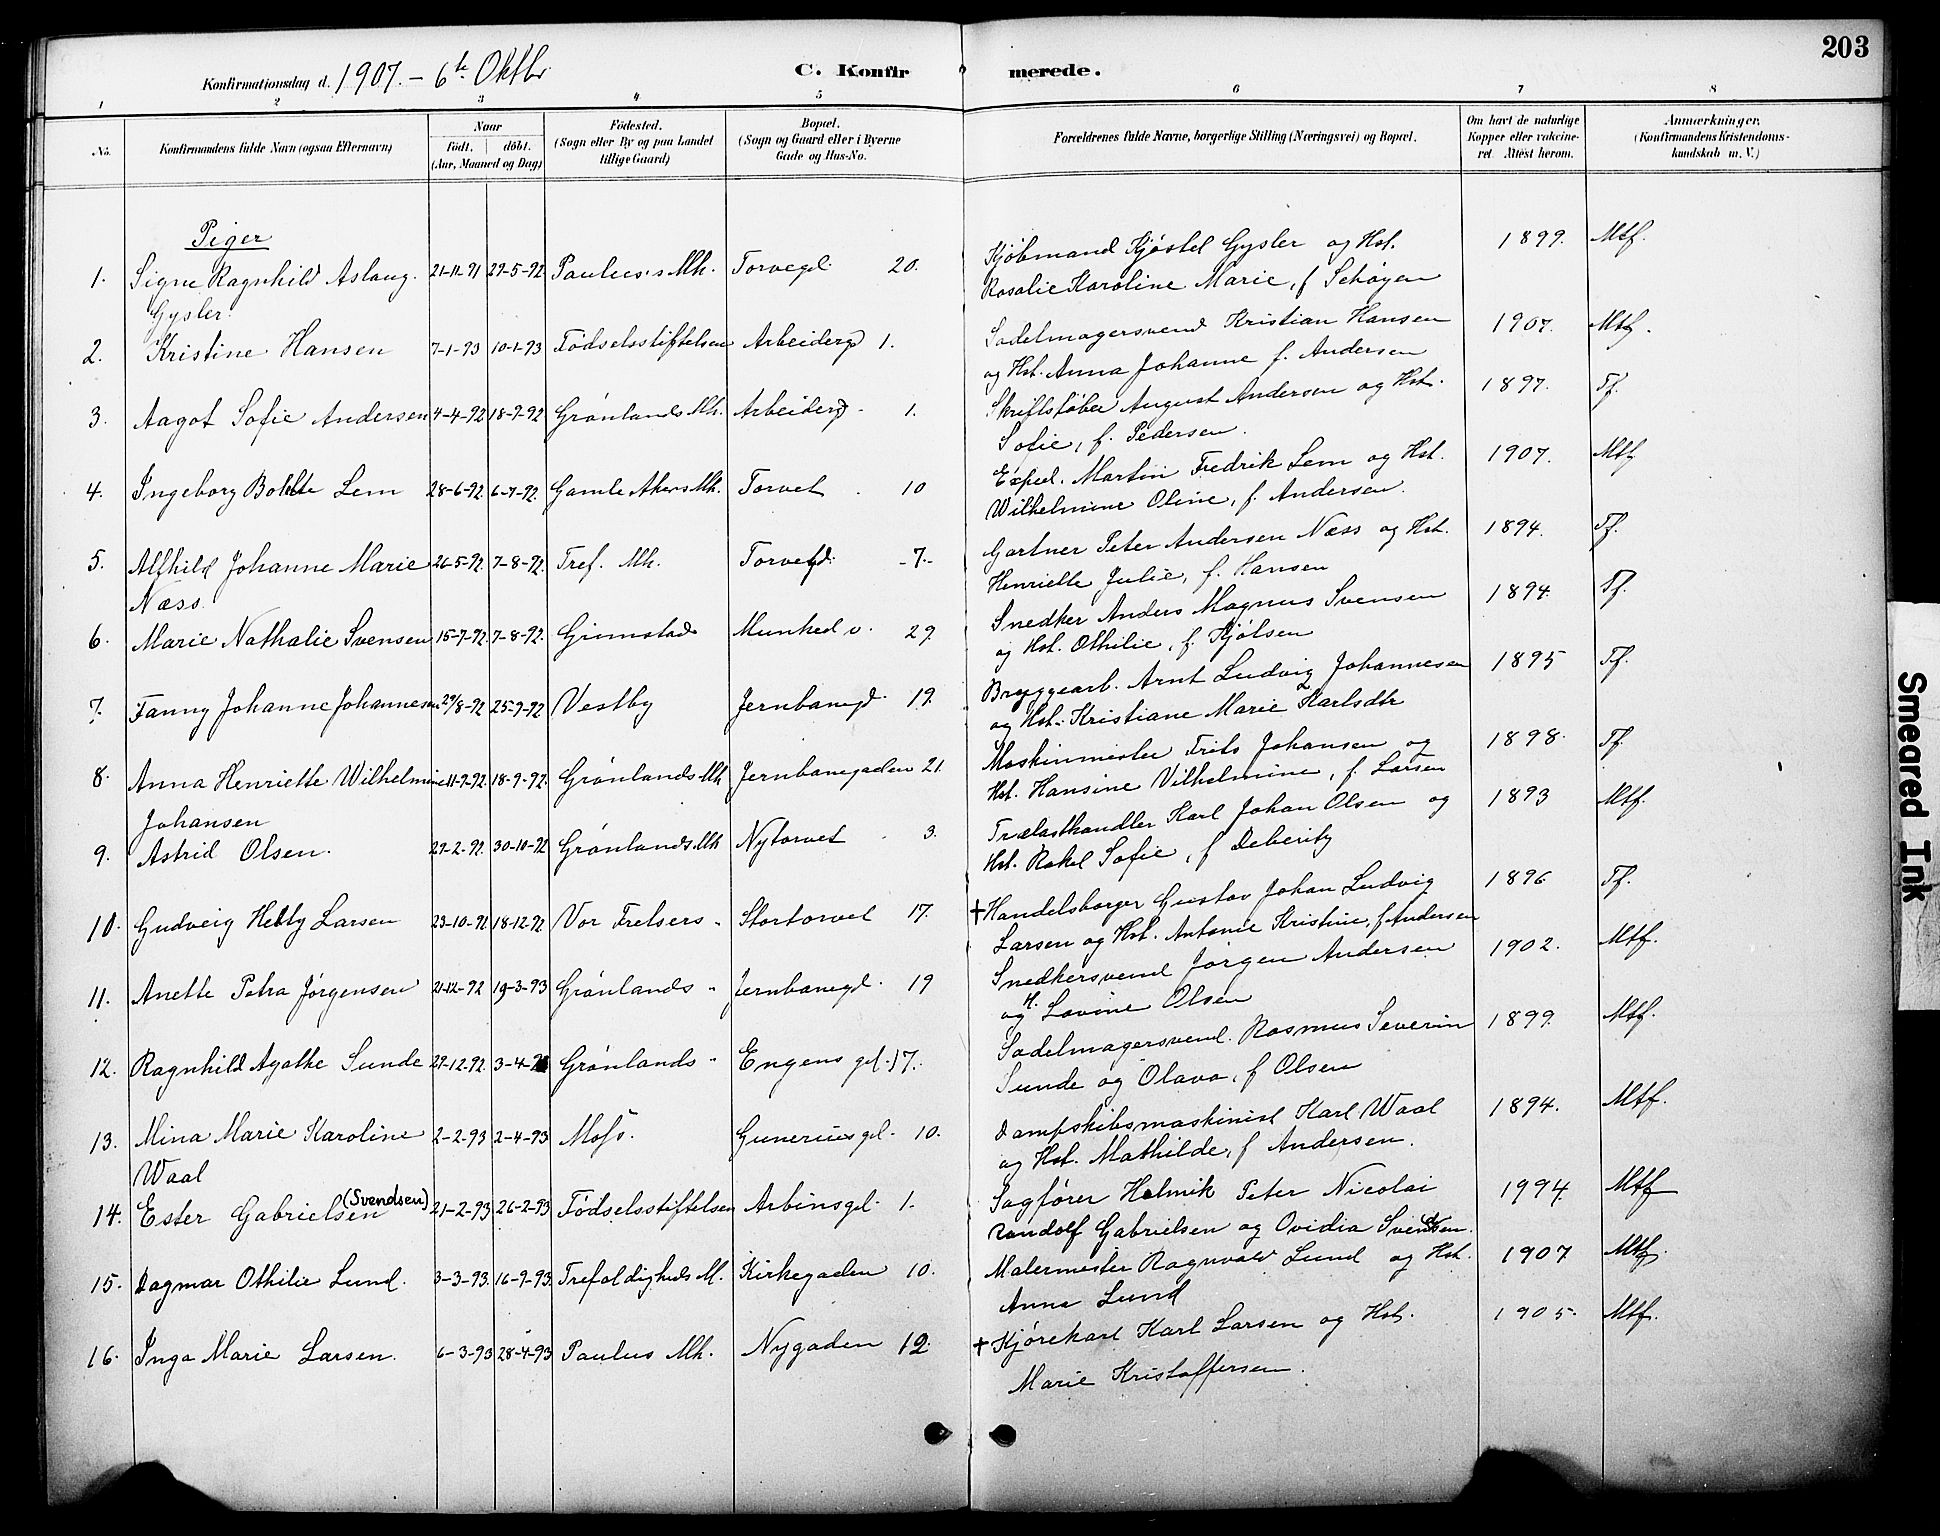 203
Konfirmationsdag d. 1907. – 6te Oktbr
C. Konfirmerede.
1 2 3 4 5 6 7 8
No. Konfirmandens fulde Navn (ogsaa Efternavn) Naar født. døbt. (Aar, Maaned og Dag) Fødested. (Sogn eller By og paa Landet tillige Gaard) Bopæl. (Sogn og Gaard eller i Byerne Gade og Hus-No. Forældrenes fulde Navne, borgerlige Stilling (Næringsvei) og Bopæl. Om havt de naturlige Kopper eller vakcineret. Attest herom. Anmærkninger. (Konfirmandens Kristendomskundskab m. V.)
Piger
1. Signe Ragnhild Aslaug 21-11-91 29-5-92 Paulus's Mh. Torvegd. 20. Kjøbmand Kjøstel Gysler og Hst. 1899. Mtf.
Gysler. Rosalie Karoline Marie, f Schøyen
2. Kristine Hansen 7-1-93 10-1-93 Fødselsstiftelsen Arbeiderg 1. Sadelmagersvend Kristian Hansen 1907. Mtf.
og Hst. Anna Johanne f. Andersen
3. Aagot Sofie Andersen 4-4-92 18-9-92 Grønlands Mh. Arbeiderg. 1. Skriftstøber August Andersen og Hst. 1897. Tf.
Sofie, f. Pedersen.
4. Ingeborg Bolette Lem 28-6-92. 6-7-92. Gamle Akers Mh. Torvet 10 Exped. Martin Fredrik Lem og Hst. 1907. Mtf
Wilhelmine Oline, f. Andersen.
5. Alfhild Johanne Marie 26-5-92. 7-8-92. Tref. Mh. Torvegd. -7.- Gartner Peter Andersen Næss og Hst. 1894. Tf.
Næss. Henriette Julie, f. Hansen
6. Marie Nathalie Svensen 15-7-92. 7-8-92. Grimstad Munked v. 29. Snedker Anders Magnus Svensen 1894. Tf.
og Hst. Othilie, f. Kjølsen
7. Fanny Johanne Johannesen 29/8-92 25-9-92 Vestby Jernbanegd. 19. Bryggearb. Arnt Ludvig Johannesen 1895 Tf.
og Hst. Kristiane Marie Karlsdtr
8. Anna Henriette Wilhelmine 11-7-92. 18-9-92. Grønlands Mh Jernbanegaden 21. Maskinmester Frits Johansen og 1898. Tf.
Johansen Hst. Hansine Vilhelmine, f. Larsen
9. Astrid Olsen. 29-2-92. 30-10-92 Grønlands Mh Nytorvet 3. Trælasthandler Karl Johan Olsen og 1893 Mtf.
Hst. Rakel Sofie, f
10. Gudveig Helly Larsen 23-10-92 18-12-92 Vor Frelsers „ Stortorvet 17. † Handelsborger Gustav Johan Ludvig 1896 Tf.
Larsen og Hst. Antonie Kristine, f Andersen
11. Anette Petra Jørgensen 21-12-92 19-3-93 Grønlands „ Jernbanegd. 19 Snedkersvend Jørgen Andersen 1902. Mtf.
og H. Lovine Olsen
12. Ragnhild Agathe Sunde 29-12-92. 3-4- Grønlands „ Engens gd. 17. Sadelmagersvend. Rasmus Severin 1899. Mtf.
Sunde og Olava, f Olsen
13. Mina Marie Karoline 2-2-93 2-4-93 Moss. Gunerius gd. 10. Dampskibsmaskinist Karl Waal 1894. Mtf.
Waal og Hst. Mathilde, f Andersen.
14. Ester Gabrielsen (Svendsen) 21-2-93 26-2-93 Fødselsstiftelsen Arbinsgd. 1. Sagfører Helmik Peter Nicolai 1994 Mtf
Randolf Gabrielsen og Ovidia Svendsen.
15. Dagmar Othilie Lund. 3-3-93. 16-9-93. Trefoldigheds M. Kirkegaden 10. Malermester Ragnvald Lund og Hst. 1907 Mtf.
Anna Lund
16. Inga Marie Larsen. 6-3-93 28-4-93 Paulus Mh. Nygaden 12. † Kjørekarl Karl Larsen og Hst. 1905. Mtf.
Marie Kristoffersen.
Smeared Ink